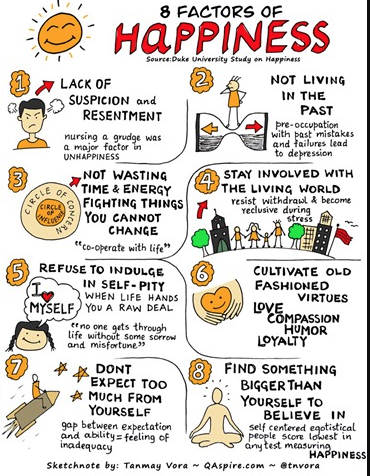 8 FACTORS OF
HAPPINESS
Source:Duke University Study on Happiness
1
LACK OF
SUSPICION and
RESENTMENT
nursing a grudge was
a major factor in
UNHAPPINESS
2
NOT LIVING
IN THE
PAST
pre-occupation
with past mistakes
and failures lead
to depression
3
NOT WASTING
TIME & ENERGY
FIGHTING THINGS
YOU CANNOT
CHANGE
"co-operate with life"
CIRCLE OF CONCERN
CIRCLE OF
INFLUENCE
4
STAY INVOLVED WITH
THE LIVING WORLD
resist withdrawl & become
reclusive during
stress
5
REFUSE TO INDULGE
IN SELF-PITY
WHEN LIFE HANDS
YOU A RAW DEAL
I
MYSELF
"no one gets through
life without some sorrow
and misfortune."
6
CULTIVATE OLD
FASHIONED
VIRTUES
LOVE
COMPASSION
HUMOR
LOYALTY
7
DONT
EXPECT TOO
MUCH FROM
YOURSELF
gap between expectation
and ability = feeling of
inadequacy
8
FIND SOMETHING
BIGGER THAN
YOURSELF TO
BELIEVE IN
self centered egotistical
people score lowest in
any test measuring
HAPPINESS
Sketchnote by: Tanmay Vora ~ QAspire.com ~ @tnvora